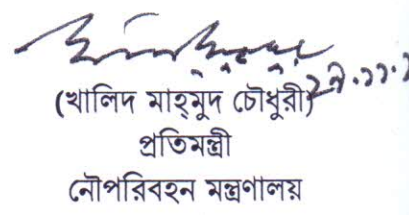 (খালিদ মাহ্‌মুদ চৌধুরী)
প্রতিমন্ত্রী
নৌপরিবহন মন্ত্রণালয়